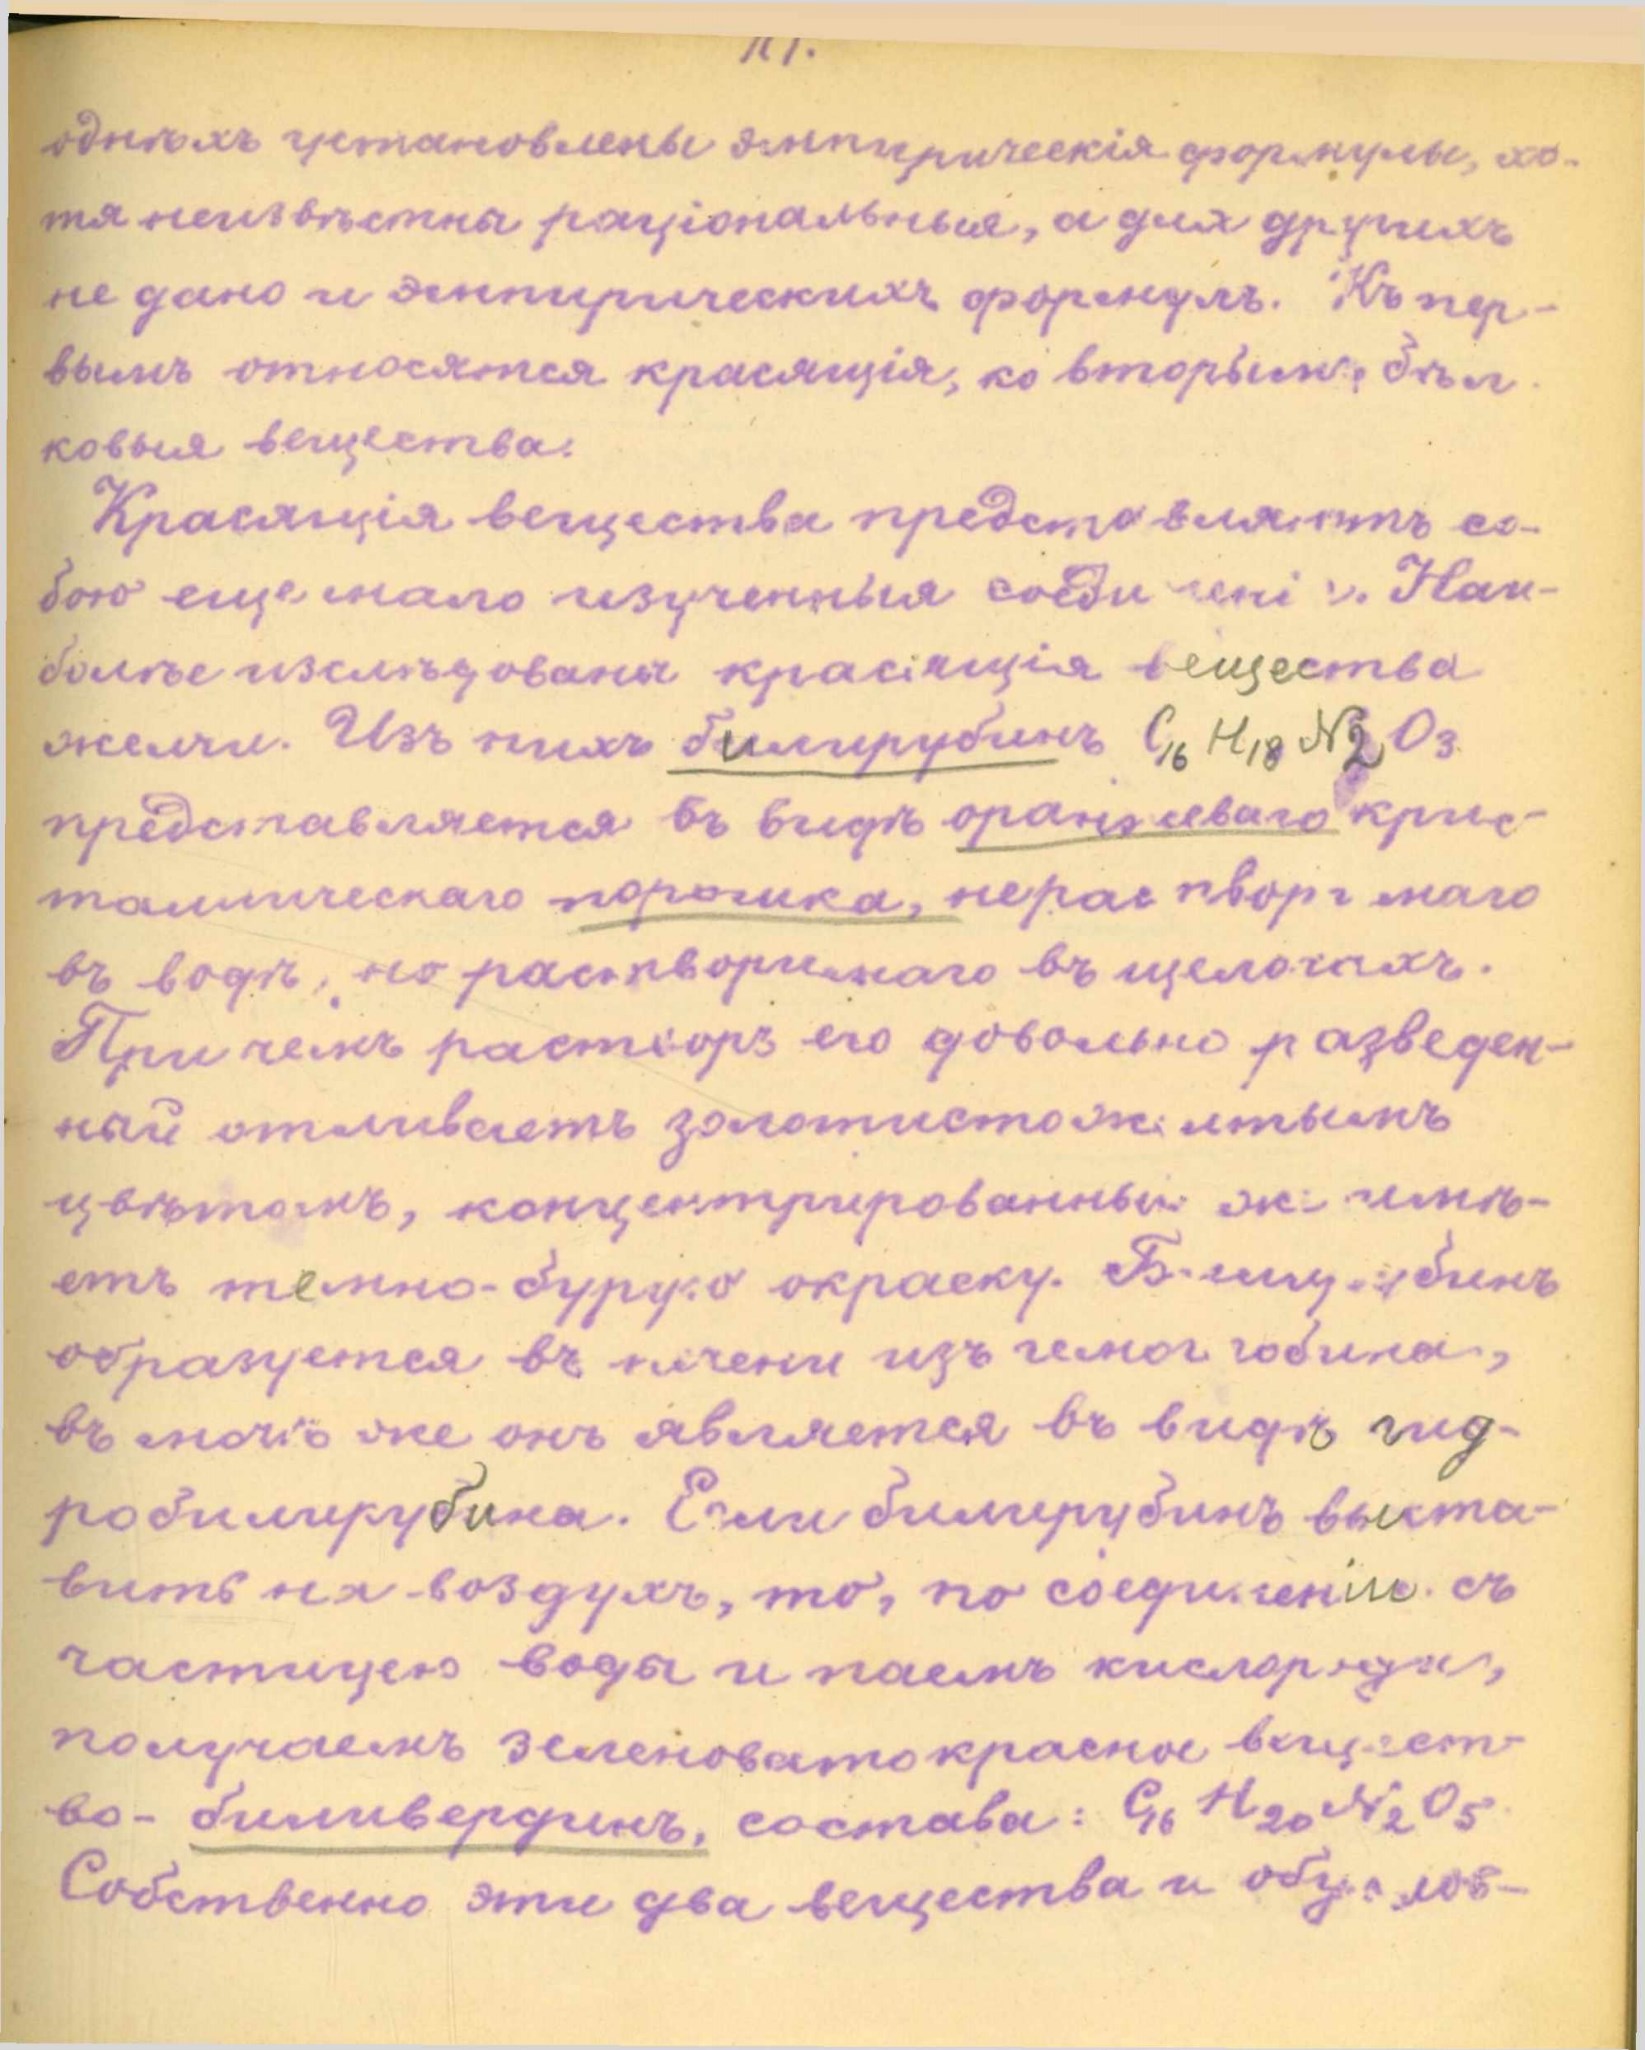 однѣхъ установлены эмпирическія формулы, хо-
тя неизвѣстны раціональныя, а для другихъ
не дано и эмпирическихъ формулъ. Къ пер-
вымъ относятся красящія, ко вторымъ бѣл
ковыя вещества.
Красящія вещества представляютъ со-
бою еще мало изученныя соединенія. Наи-
болѣе изслѣдованы красящія вещества
желчи. Изъ нихъ билирубинъ C16 H18 N2 O3
представляется въ видѣ оранжеваго крис-
таллическаго порошка, нерастворимаго
въ водѣ, но растворимаго въ щелочахъ.
При чемъ растворъ его довольно разведен-
ный отливаетъ золотистожелтымъ
цвѣтомъ, концентрированный же имѣ-
етъ темно-бурую окраску. Билирубинъ
образуется въ печени изъ гемоглобина,
въ мочѣ же онъ является въ видѣ гид-
робилирубина. Если билирубинъ выста-
вить на воздухъ, то, по соединеніи съ
частицею воды и паемъ кислорода,
получаемъ зеленоватокрасное вещест-
во - биливердинъ, состава: C16 H20 N2 O5
Собственно эти два вещества и обуслов-